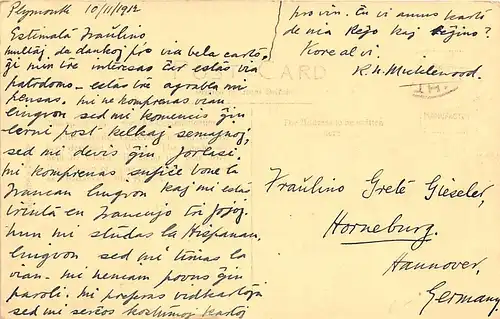 Plymouth 10/11/1912
Estimata Fraŭlino
multaj da dankoj pro via bela karto,
ĝi min tre interesas ĉar estas via
patrdomo - estas tre agrabla mi
pensas. mi ne komprenas vian
lingvon sed mi komencis ĝin
lerni post kelkaj semajnoj,
sed mi devis ĝin forlasi.
mi komprenas sufiĉe bone la
Francan lingvon kaj mi estis
en Francujo tri fojoj.
nun mi studas la Hispanan
lingvon sed mi timas la
vian - mi neniam povus ĝin
paroli. Mi preferas vidkartojn
sed mi serĉos kostumoj kartoj
pro vin. Ĉu vi amus kartoj
de nia Reĝo kaj Reĝino?
Kore al vi
POST CARD
Fraŭlino Grete Gieseler,
Horneburg.
Hannover,
Germany